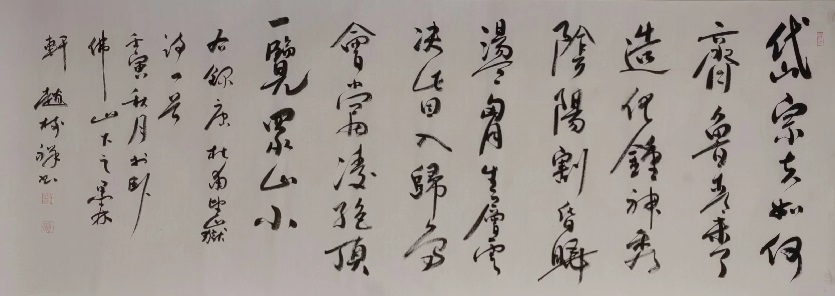 岱宗夫如何
齊魯青未了
造化鍾神秀
陰陽割昏曉
盪胸生層雲
決眥入歸鳥
會當凌絕頂
一覽眾山小
右錄唐杜甫望嶽
詩一首
壬寅秋月於卧
佛山下之墨林
軒 趙樹祥書